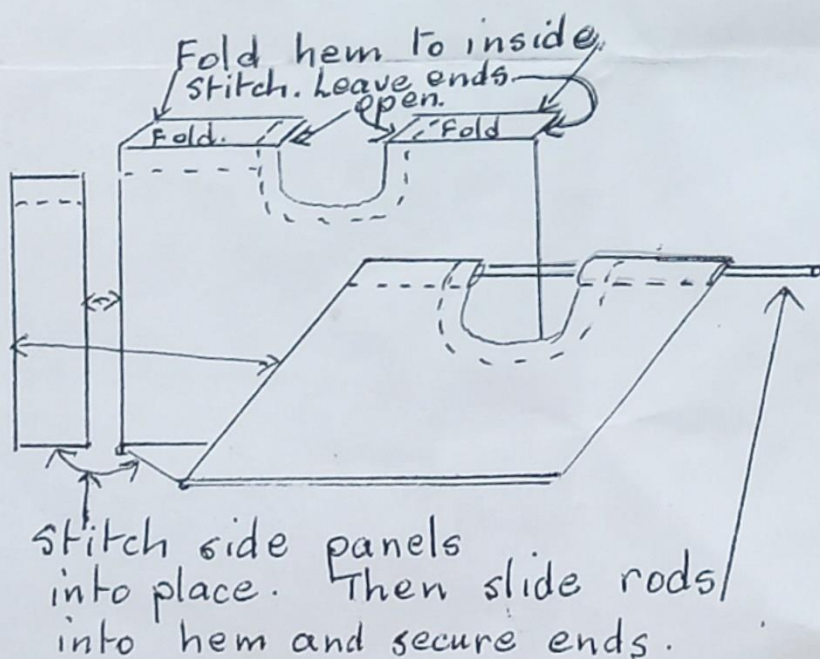 Fold hem to inside
Stitch. Leave ends
open.
Fold. Fold
Stitch side panels
into place. Then slide rods
into hem and secure ends.